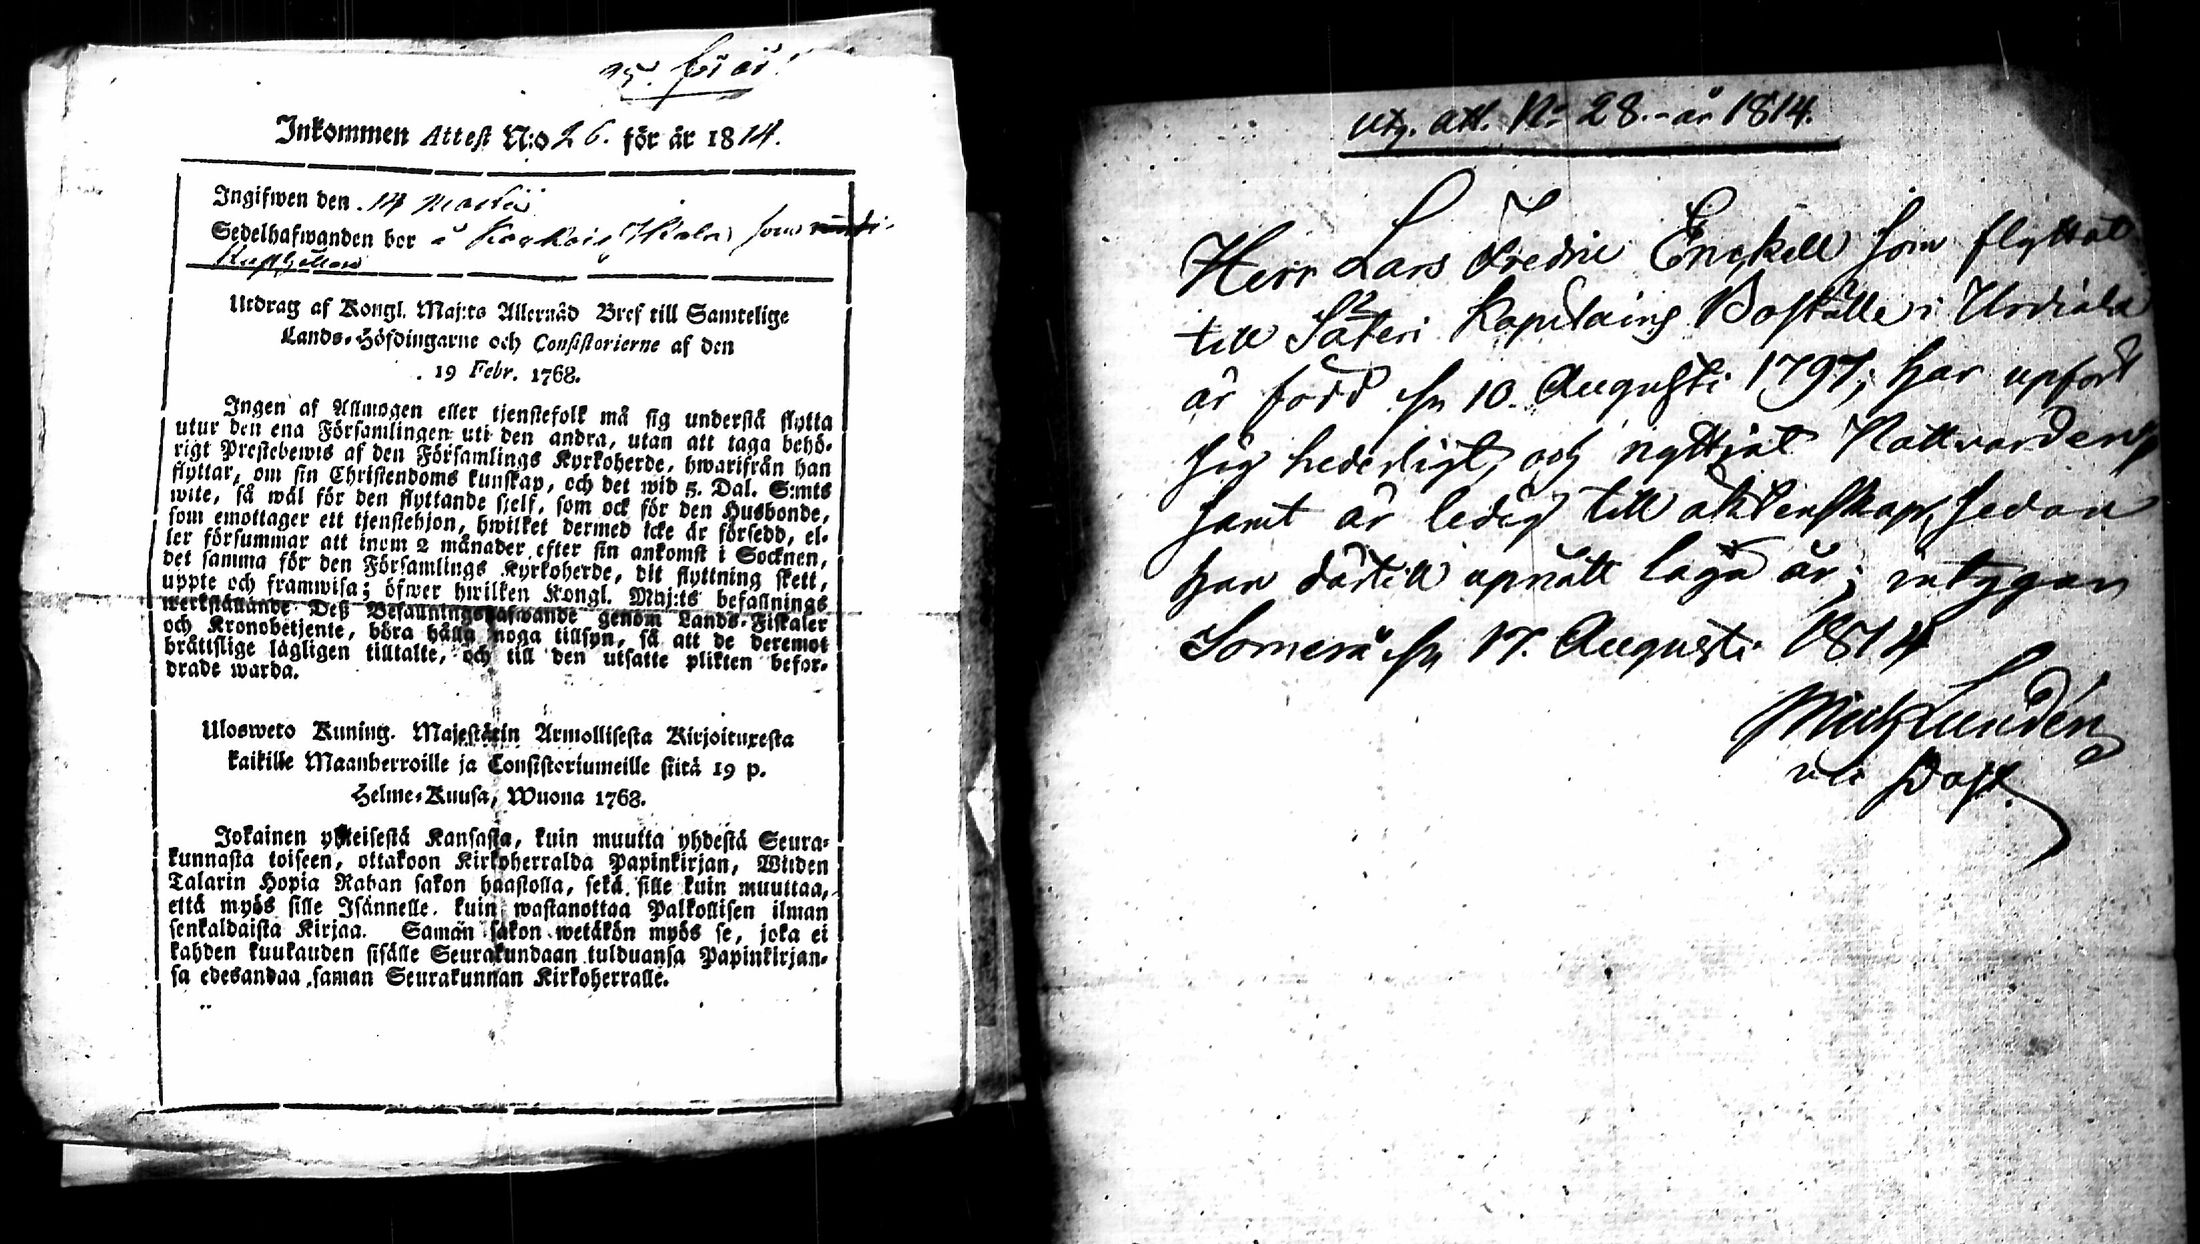 Inkommen Attest N:o 26. för år 1814.
Ingifwen den 14 Martii
Sedelhafwanden bor å som
Utdrag af Kongl. Maj:ts Allernåd Bref till Samtelige
Lands-Höfdingarne och Consistorierne af den
19 Febr. 1768.
Ingen af Allmogen eller tjenstefolk må sig understå flytta
utur den ena Församlingen uti den andra, utan att taga behö-
rigt Prestebewis af den Församlings Kyrkoherde, hwarifrån han
flyttar, om sin Christendoms kunskap, och det wid 5. Dal. S:mts
wite, så wäl för den flyttande sjelf, som ock för den Husbonde,
som emottager ett tjenstehjon, hwilket dermed icke är försedd, el-
ler försummar att inom 2 månader efter sin ankomst i Socknen,
det samma för den Församlings Kyrkoherde, dit flyttning skett,
uppte och framwisa; öfwer hwilken Kongl. Maj:ts befallnings
werkställande Deß Befallningshafwande genom Lands-Fiskaler
och Kronobetjente, böra hålla noga tillsyn, så att de deremot
bråttslige lagligen tilltalte, och till den utsatte plikten befor-
drade warda.
Ulosweto Kuning. Majestätin Armollisesta Kirjoituxesta
kaikille Maanherroille ja Consistoriumeille siitä 19 p.
Helme-Kuusa, Wuona 1768.
Jokainen yhteisestä Kansasta, kuin muutta yhdestä Seura-
kunnasta toiseen, ottakoon Kirkoherralda Papinkirjan, Wiiden
Talarin Hopia Rahan sakon haastolla, sekä sille kuin muuttaa,
että myös sille Isännelle, kuin wastanottaa Palkollisen ilman
senkaldaista Kirjaa. Saman sakon wetäkön myös se, joka ei
kahden kuukauden sisälle Seurakundaan tulduansa Papinkirjan-
sa edesandaa saman Seurakunnan Kirkoherralle.
utg. att. No 28. år 1814.
Herr Lars Fredric Enckell som flyttat
till Säteri Kapitains Boställe i Urdiala
är född den 10. Augusti 1797; har upfört
sig hederligt, och nyttjat Nattvarden,
samt är ledig till äktenskap, sedan
han därtill upnått laga år; intygar
Somero den 17. Augusti 1814
Mich Lundén
vic Past.